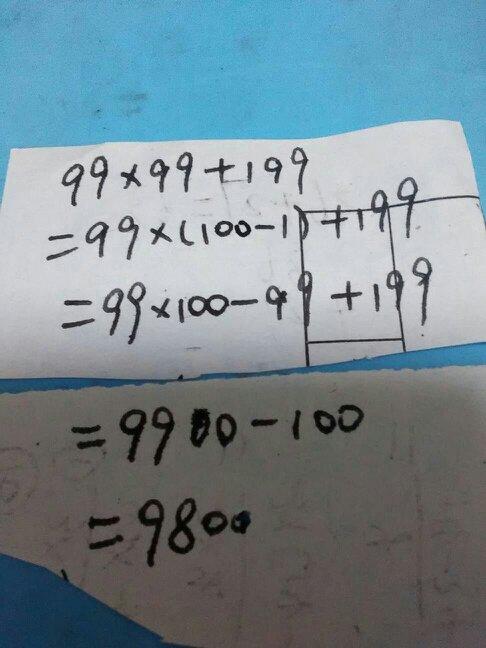 99×99+199
=99×(100-1)+199
=99×100-99+199
=9900-100
=9800